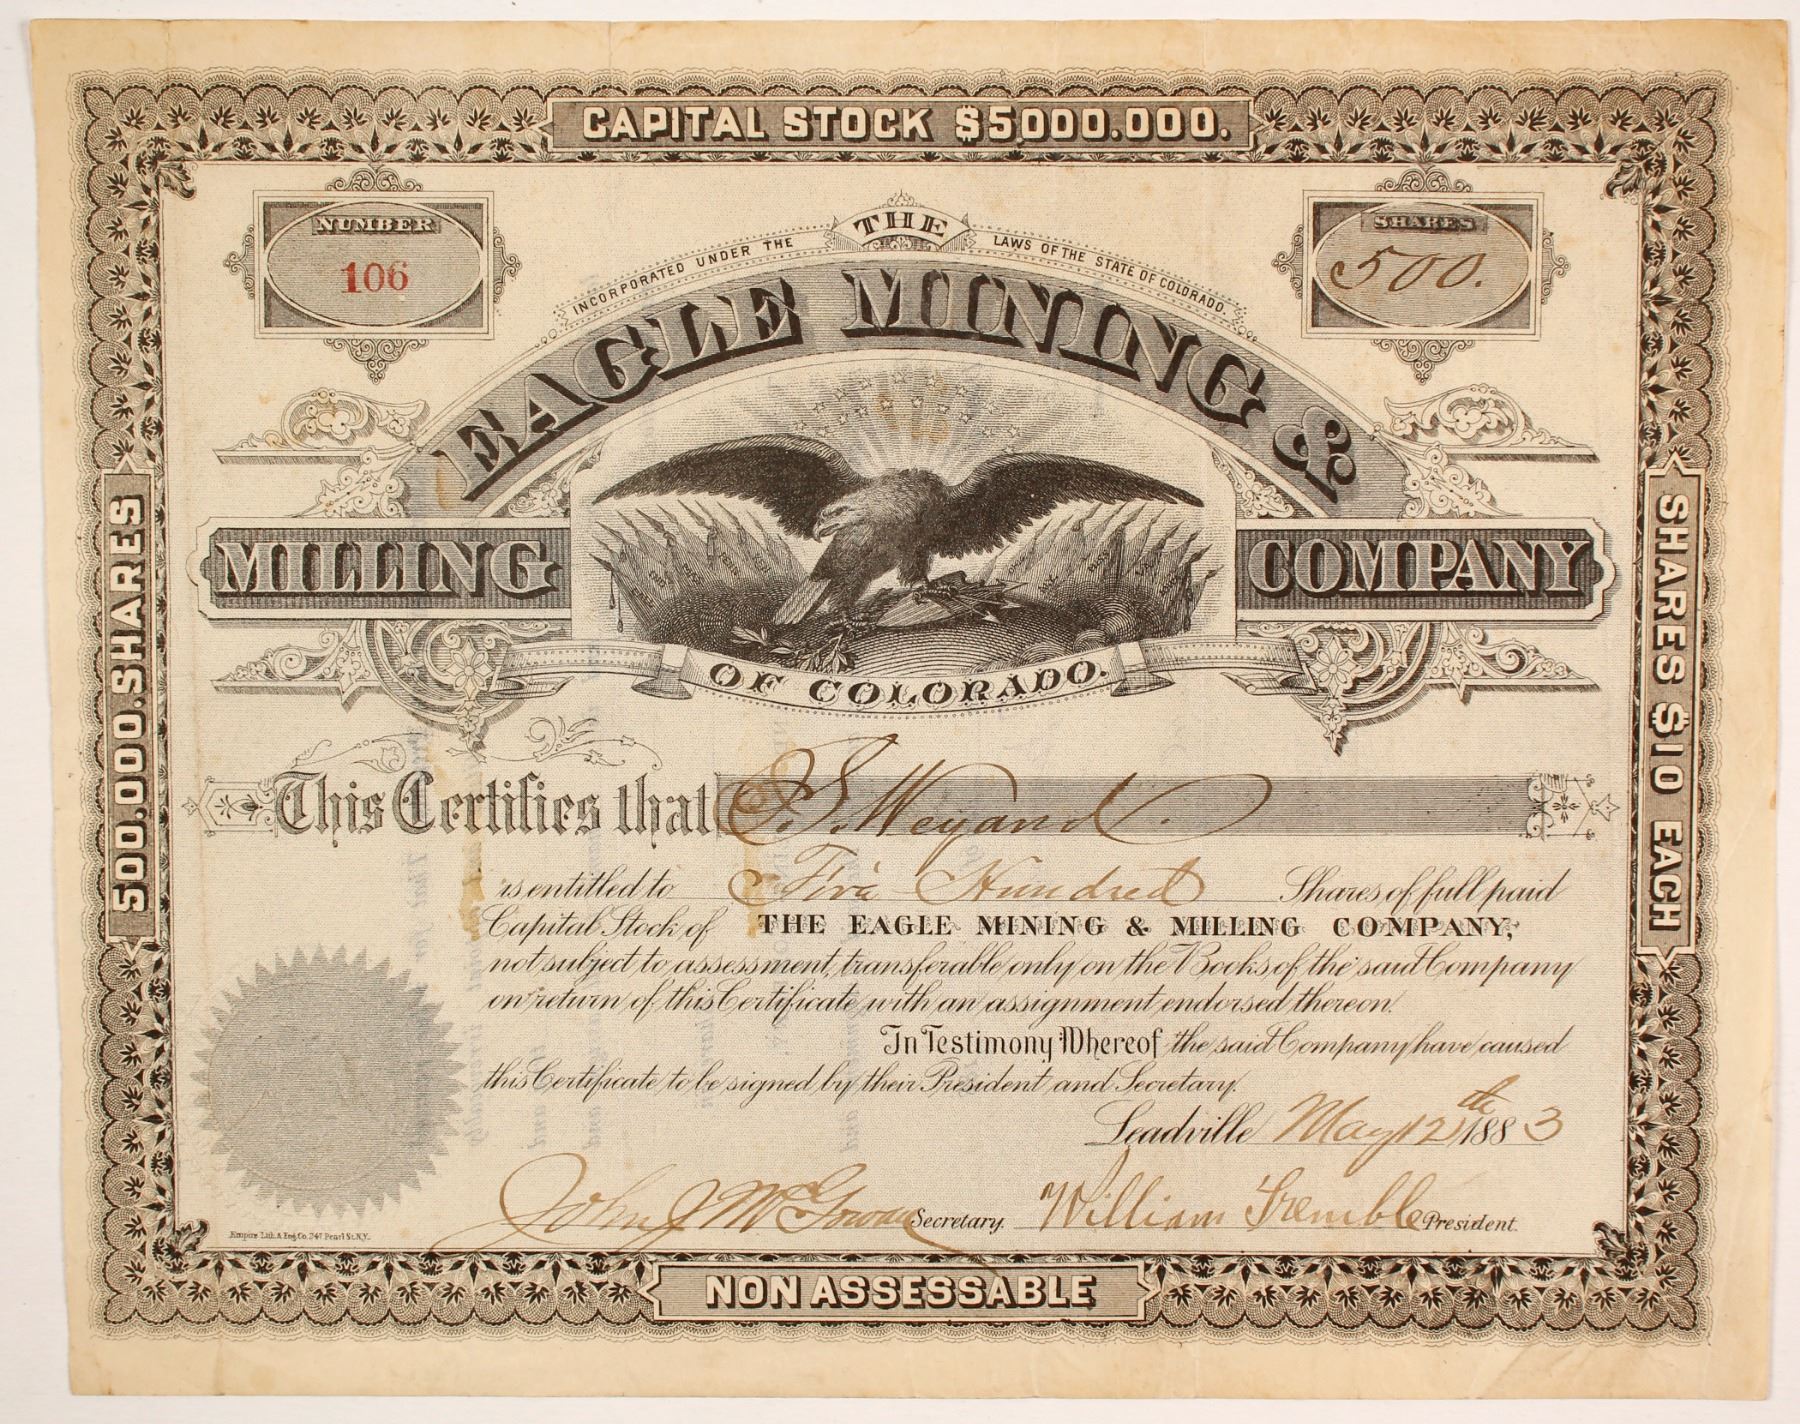 CAPITAL STOCK $5000.000.
NUMBER
106
SHARES
500.
INCORPORATED UNDER THE LAWS OF THE STATE OF COLORADO.
THE
EAGLE MINING &
MILLING COMPANY
OF COLORADO.
500.000.SHARES
SHARES $10 EACH
This Certifies that C.S. Weyand.
is entitled to Five Hundred Shares of full paid
Capital Stock of THE EAGLE MINING & MILLING COMPANY,
not subject to assessment, transferable only on the Books of the said Company
on return of this Certificate with an assignment endorsed thereon.
In Testimony Whereof the said Company have caused
this Certificate to be signed by their President and Secretary.
Leadville May 12th 1883
John J McGowan Secretary. William Tremble President.
Empire Lith. & Eng. Co. 247 Pearl St. N.Y.
NON ASSESSABLE